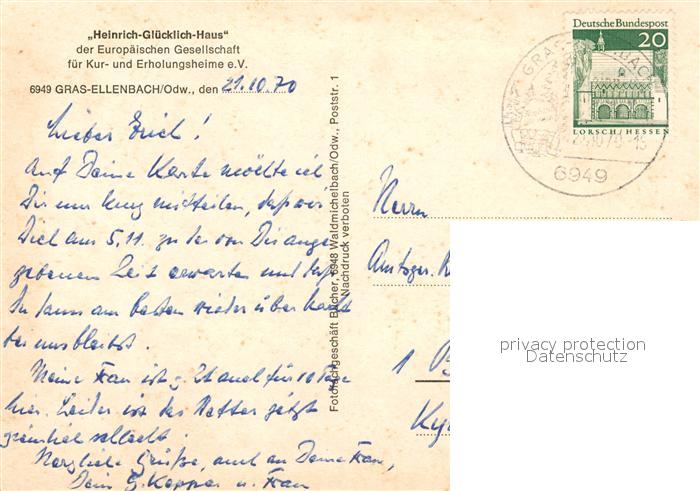 „Heinrich-Glücklich-Haus"
der Europäischen Gesellschaft
für Kur- und Erholungsheime e.V.
6949 GRAS-ELLENBACH/Odw., den 21.10.70
Lieber Erich!
Auf Deine Karte möchte ich
Dir nur kurz mitteilen, daß wir
Dich am 5.11. zu der von Dir ange-
gebenen Zeit erwarten und daß
Du dann am besten wieder über Nacht
bei uns bleibst.
Meine Frau ist z. Zt auch für 10 Tage
hier. Leider ist das Wetter jetzt
ziemlich schlecht.
Herzliche Grüße, auch an Deine Frau,
Dein G. u. Frau
Fotofachgeschäft Bücher, 6948 Waldmichelbach/Odw., Poststr. 1
Nachdruck verboten
Deutsche Bundespost
20
LORSCH/HESSEN
6949
Herrn
Amtsger.
1
privacy protection
Datenschutz